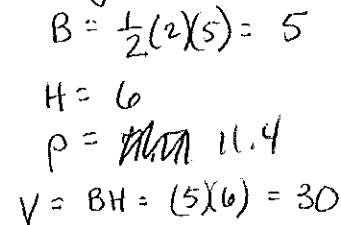 B = 1/2(2)(5) = 5
H = 6
p = 11.4
V = BH = (5)(6) = 30